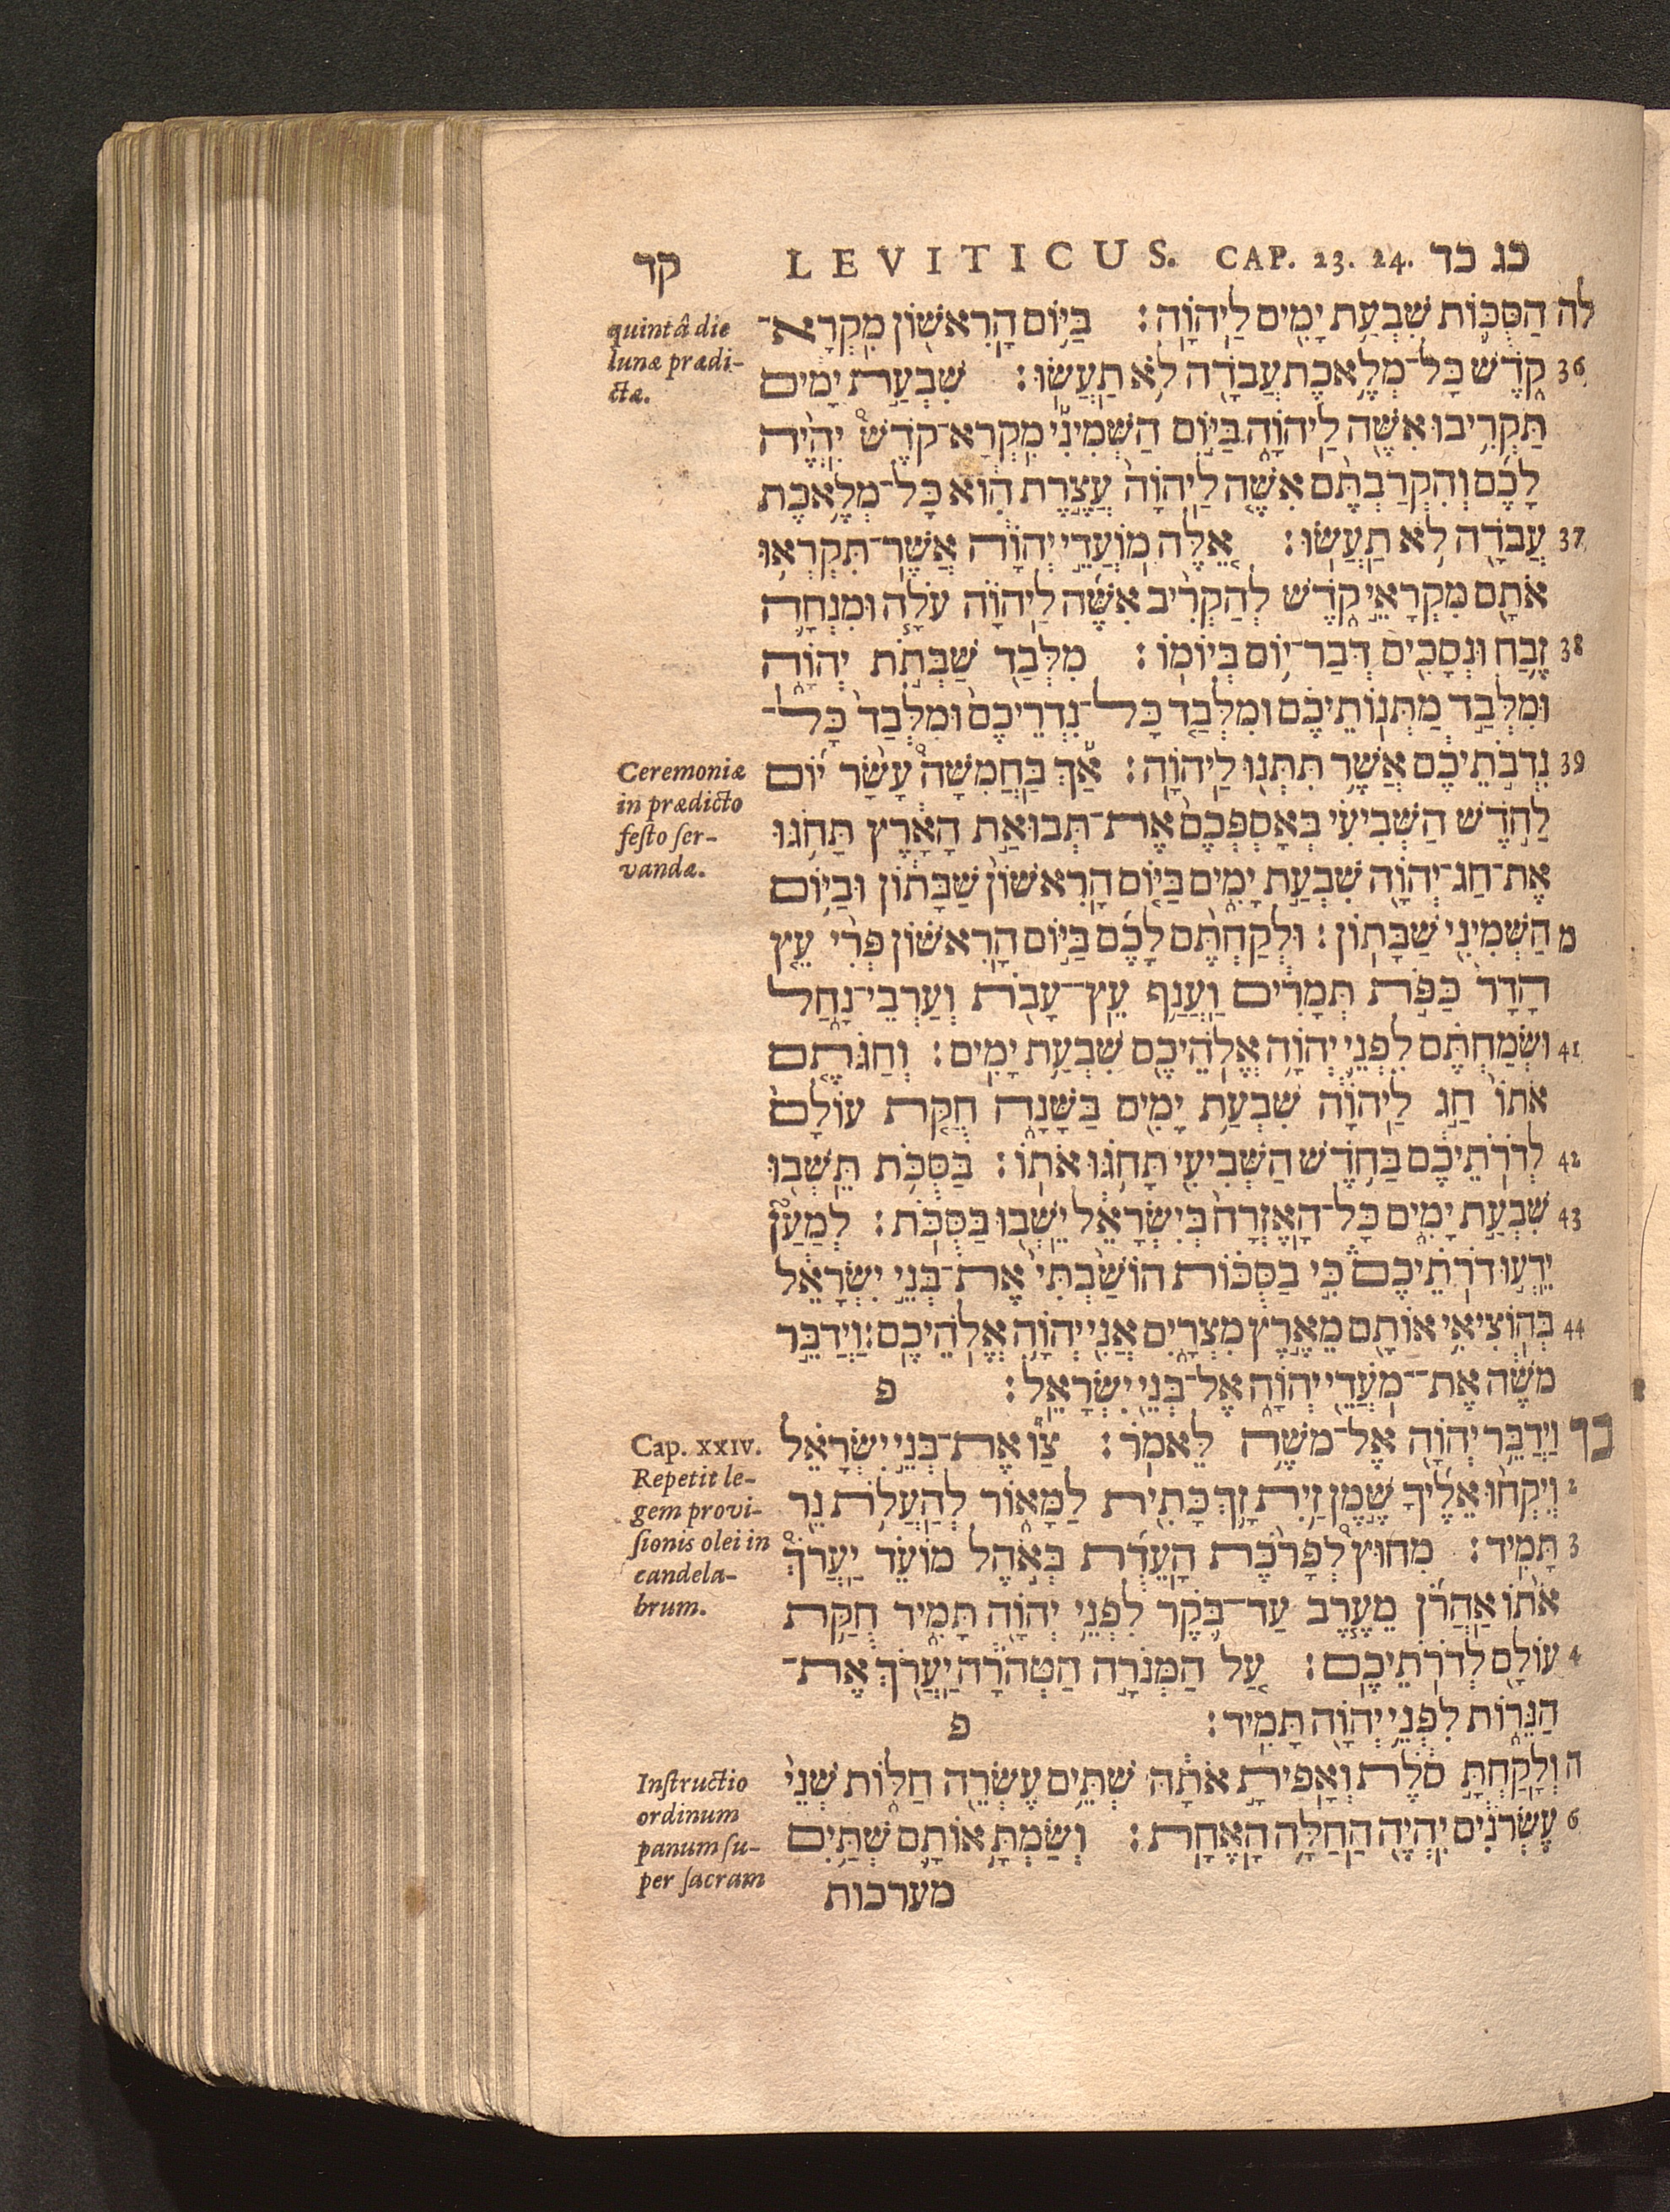 כג כד LEVITICUS. CAP. 23. 24. קד
לה הַסֻּכּוֹת שִׁבְעַת יָמִים לַיהוָה׃ בַּיּוֹם הָרִאשׁוֹן מִקְרָא־
36 קֹדֶשׁ כָּל־מְלֶאכֶת עֲבֹדָה לֹא תַעֲשׂוּ׃ שִׁבְעַת יָמִים
תַּקְרִיבוּ אִשֶּׁה לַיהוָה בַּיּוֹם הַשְּׁמִינִי מִקְרָא־קֹדֶשׁ יִהְיֶה
לָכֶם וְהִקְרַבְתֶּם אִשֶּׁה לַיהוָה עֲצֶרֶת הִוא כָּל־מְלֶאכֶת
37 עֲבֹדָה לֹא תַעֲשׂוּ׃ אֵלֶּה מוֹעֲדֵי יְהוָה אֲשֶׁר־תִּקְרְאוּ
אֹתָם מִקְרָאֵי קֹדֶשׁ לְהַקְרִיב אִשֶּׁה לַיהוָה עֹלָה וּמִנְחָה
38 זֶבַח וּנְסָכִים דְּבַר־יוֹם בְּיוֹמוֹ׃ מִלְּבַד שַׁבְּתֹת יְהוָה
וּמִלְּבַד מַתְּנוֹתֵיכֶם וּמִלְּבַד כָּל־נִדְרֵיכֶם וּמִלְּבַד כָּל־
39 נִדְבֹתֵיכֶם אֲשֶׁר תִּתְּנוּ לַיהוָה׃ אַךְ בַּחֲמִשָּׁה עָשָׂר יוֹם
לַחֹדֶשׁ הַשְּׁבִיעִי בְּאָסְפְּכֶם אֶת־תְּבוּאַת הָאָרֶץ תָּחֹגּוּ
אֶת־חַג־יְהוָה שִׁבְעַת יָמִים בַּיּוֹם הָרִאשׁוֹן שַׁבָּתוֹן וּבַיּוֹם
מ הַשְּׁמִינִי שַׁבָּתוֹן׃ וּלְקַחְתֶּם לָכֶם בַּיּוֹם הָרִאשׁוֹן פְּרִי עֵץ
הָדָר כַּפֹּת תְּמָרִים וַעֲנַף עֵץ־עָבֹת וְעַרְבֵי־נָחַל
41 וּשְׂמַחְתֶּם לִפְנֵי יְהוָה אֱלֹהֵיכֶם שִׁבְעַת יָמִים׃ וְחַגֹּתֶם
אֹתוֹ חַג לַיהוָה שִׁבְעַת יָמִים בַּשָּׁנָה חֻקַּת עוֹלָם
42 לְדֹרֹתֵיכֶם בַּחֹדֶשׁ הַשְּׁבִיעִי תָּחֹגּוּ אֹתוֹ׃ בַּסֻּכֹּת תֵּשְׁבוּ
43 שִׁבְעַת יָמִים כָּל־הָאֶזְרָח בְּיִשְׂרָאֵל יֵשְׁבוּ בַּסֻּכֹּת׃ לְמַעַן
יֵדְעוּ דֹרֹתֵיכֶם כִּי בַסֻּכּוֹת הוֹשַׁבְתִּי אֶת־בְּנֵי יִשְׂרָאֵל
44 בְּהוֹצִיאִי אוֹתָם מֵאֶרֶץ מִצְרָיִם אֲנִי יְהוָה אֱלֹהֵיכֶם׃ וַיְדַבֵּר
מֹשֶׁה אֶת־מֹעֲדֵי יְהוָה אֶל־בְּנֵי יִשְׂרָאֵל׃ פ
כד וַיְדַבֵּר יְהוָה אֶל־מֹשֶׁה לֵּאמֹר׃ צַו אֶת־בְּנֵי יִשְׂרָאֵל
2 וְיִקְחוּ אֵלֶיךָ שֶׁמֶן זַיִת זָךְ כָּתִית לַמָּאוֹר לְהַעֲלֹת נֵר
3 תָּמִיד׃ מִחוּץ לְפָרֹכֶת הָעֵדֻת בְּאֹהֶל מוֹעֵד יַעֲרֹךְ
אֹתוֹ אַהֲרֹן מֵעֶרֶב עַד־בֹּקֶר לִפְנֵי יְהוָה תָּמִיד חֻקַּת
4 עוֹלָם לְדֹרֹתֵיכֶם׃ עַל הַמְּנֹרָה הַטְּהֹרָה יַעֲרֹךְ אֶת־
הַנֵּרוֹת לִפְנֵי יְהוָה תָּמִיד׃ פ
ה וְלָקַחְתָּ סֹלֶת וְאָפִיתָ אֹתָהּ שְׁתֵּים עֶשְׂרֵה חַלּוֹת שְׁנֵי
6 עֶשְׂרֹנִים יִהְיֶה הַחַלָּה הָאֶחָת׃ וְשַׂמְתָּ אוֹתָם שְׁתַּיִם
מערכות
quintâ die
lunæ prædi-
ctæ.
Ceremoniæ
in prædicto
festo ser-
vandæ.
Cap. XXIV.
Repetit le-
gem provi-
sionis olei in
candela-
brum.
Instructio
ordinum
panum su-
per sacram